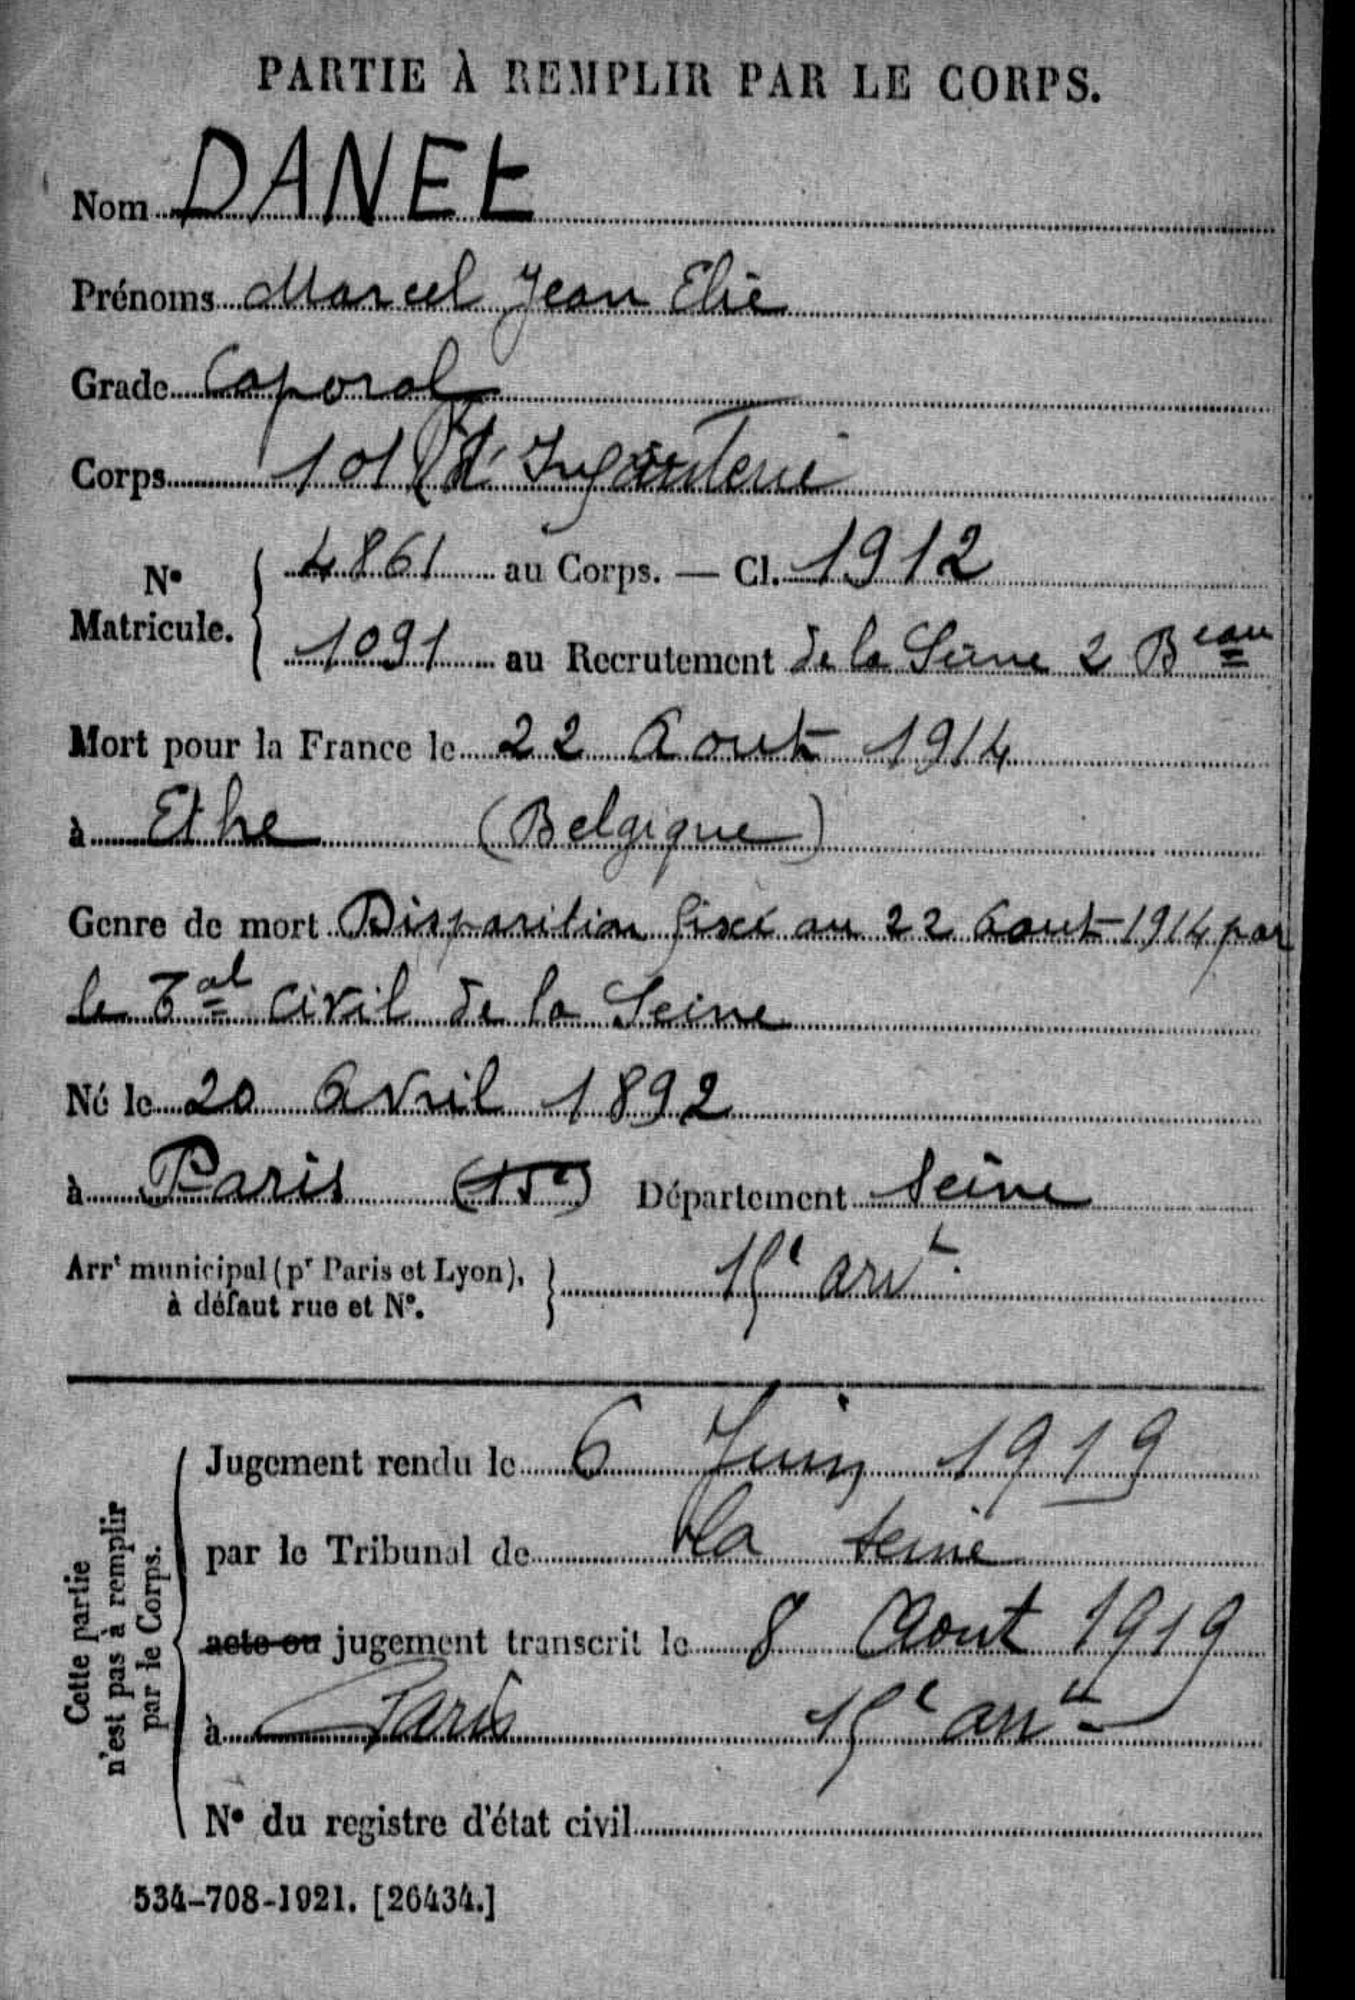 PARTIE À REMPLIR PAR LE CORPS.
Nom DANEt
Prénoms Marcel Jean Elie
Grade Caporal
Corps 101 Rt d'Infanterie
No Matricule. { 4861 au Corps. — Cl. 1912
1091 au Recrutement de la Seine 2 Beau
Mort pour la France le 22 Aout 1914
à Ethe (Belgique)
Genre de mort Disparition fixé au 22 Aout 1914 par
le Tal civil de la Seine
Né le 20 Avril 1892
à Paris (15e) Département Seine
Arrt municipal (pr Paris et Lyon),
à défaut rue et No. } 15e arrt.
Cette partie
n'est pas à remplir
par le Corps.
Jugement rendu le 6 Juin 1919
par le Tribunal de la Seine
acte ou jugement transcrit le 8 Aout 1919
à Paris 15e arrt
No du registre d'état civil
534-708-1921. [26434.]